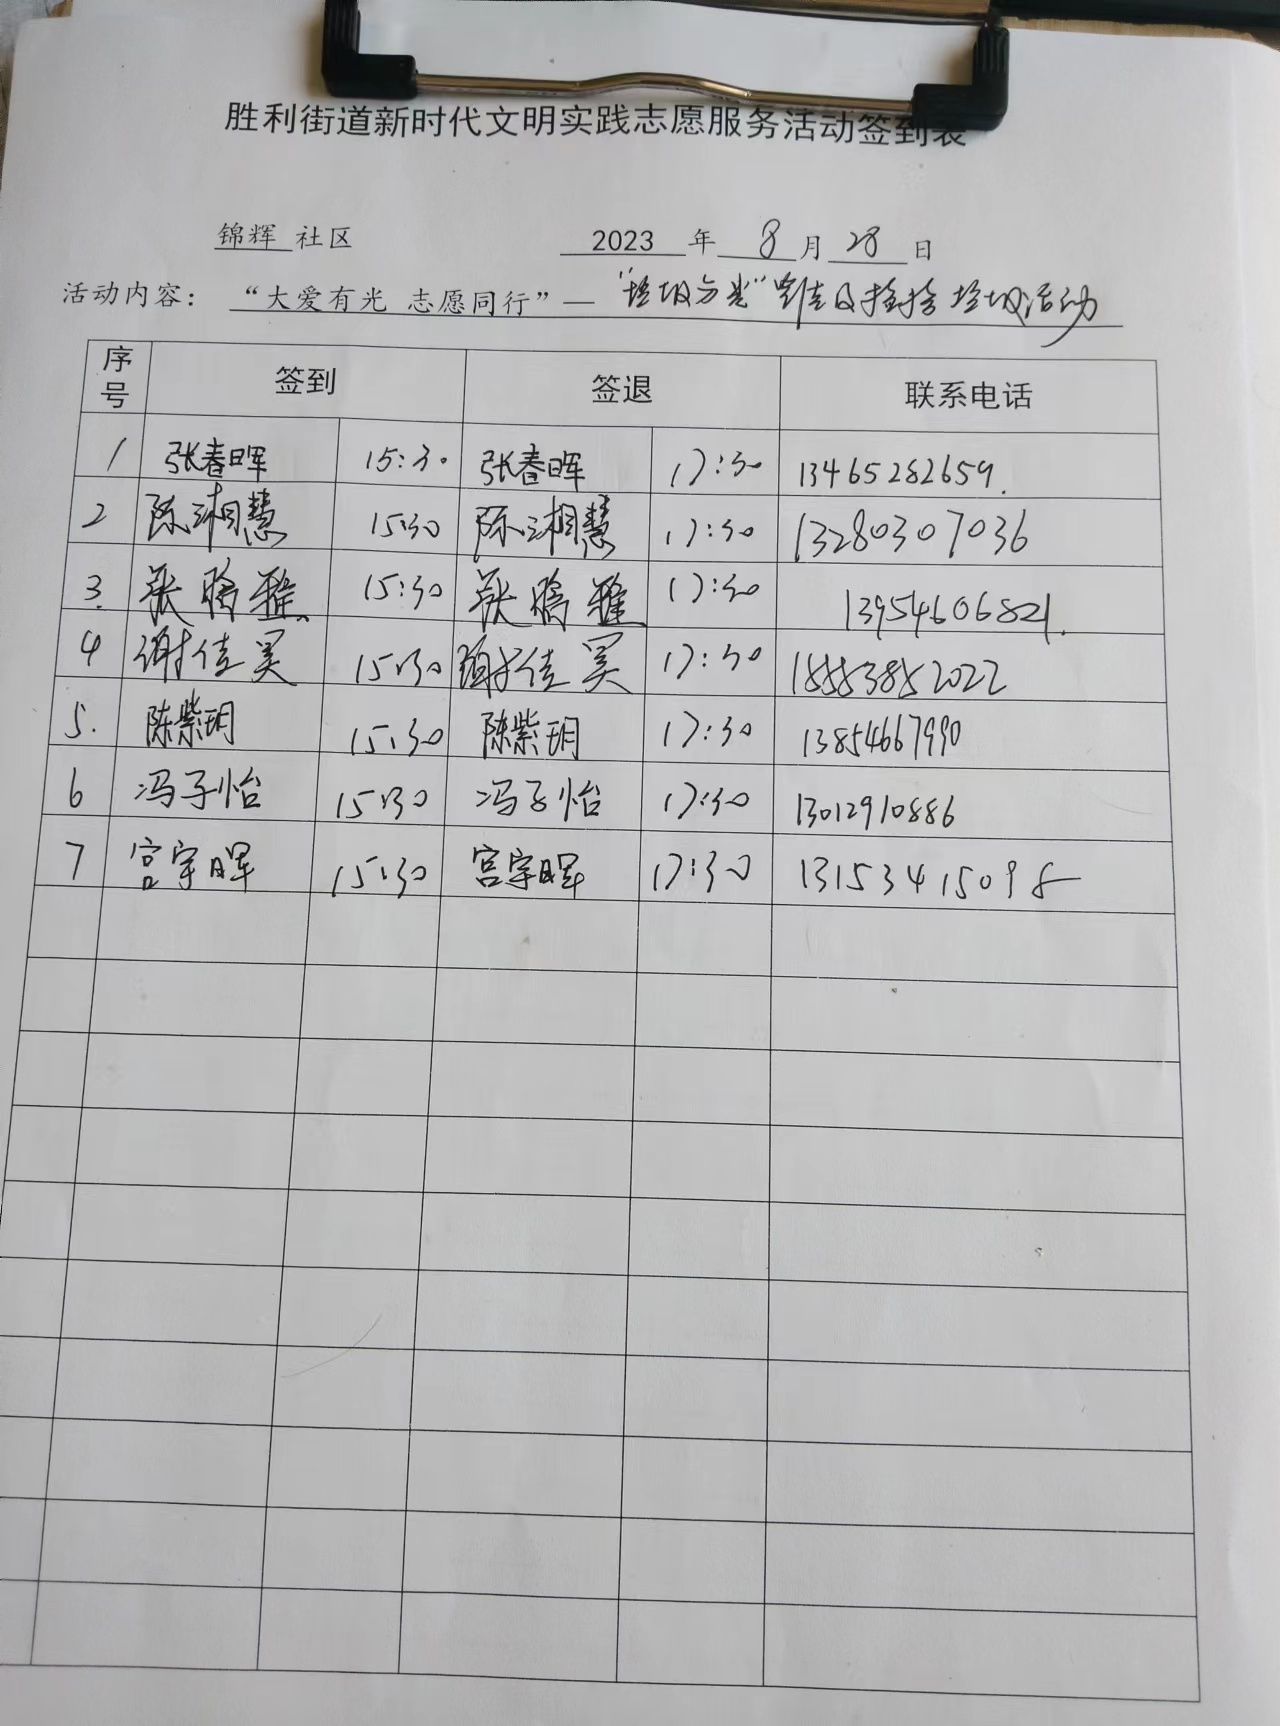 胜利街道新时代文明实践志愿服务活动签到表
锦辉 社区 2023 年 8 月 28 日
活动内容： “大爱有光 志愿同行”— “垃圾分类”宣传及捡拾垃圾活动
序号 签到 签退 联系电话
1 张春晖 15:30 张春晖 17:30 13465282659.
2 陈湘慧 15:30 陈湘慧 17:30 13280307036
3. 张晗雅 15:30 张晗雅 17:30 13954606821.
4 谢佳昊 15:30 谢佳昊 17:30 18883852022
5. 陈紫玥 15:30 陈紫玥 17:30 13854667990
6 冯子怡 15:30 冯子怡 17:30 13012910886
7 宫宇晖 15:30 宫宇晖 17:30 13153415098